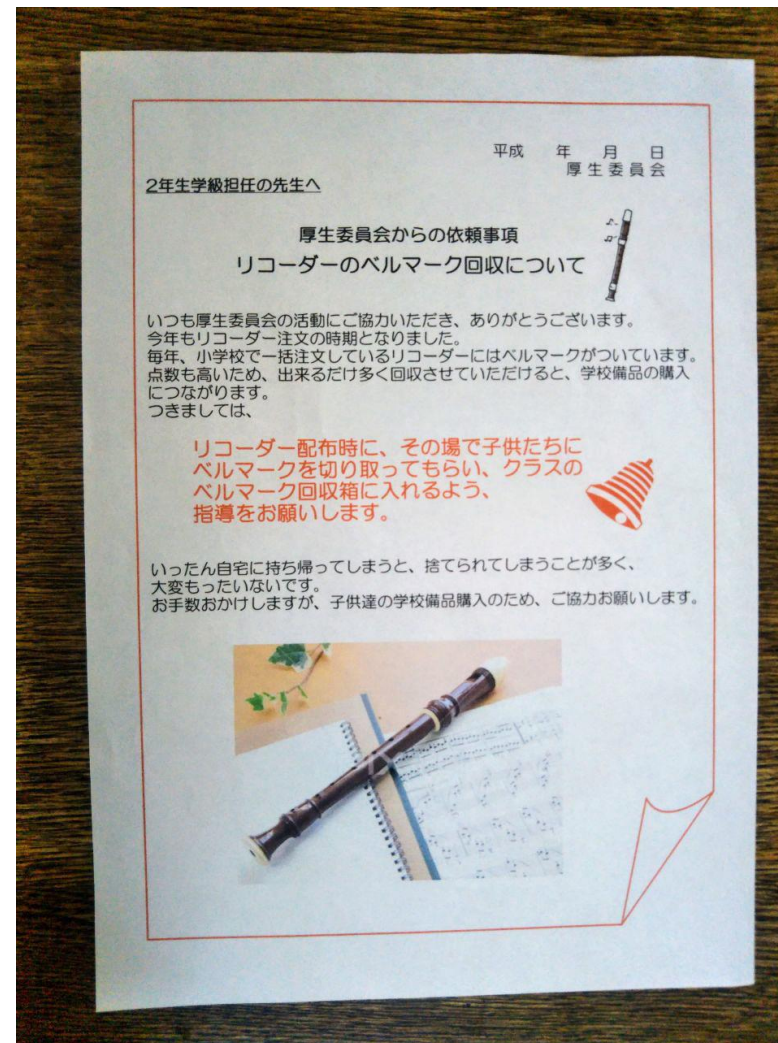 平成　　年　　月　　日
厚生委員会
2年生学級担任の先生へ
厚生委員会からの依頼事項
リコーダーのベルマーク回収について
いつも厚生委員会の活動にご協力いただき、ありがとうございます。
今年もリコーダー注文の時期となりました。
毎年、小学校で一括注文しているリコーダーにはベルマークがついています。
点数も高いため、出来るだけ多く回収させていただけると、学校備品の購入
につながります。
つきましては、
リコーダー配布時に、その場で子供たちに
ベルマークを切り取ってもらい、クラスの
ベルマーク回収箱に入れるよう、
指導をお願いします。
いったん自宅に持ち帰ってしまうと、捨てられてしまうことが多く、
大変もったいないです。
お手数おかけしますが、子供達の学校備品購入のため、ご協力お願いします。